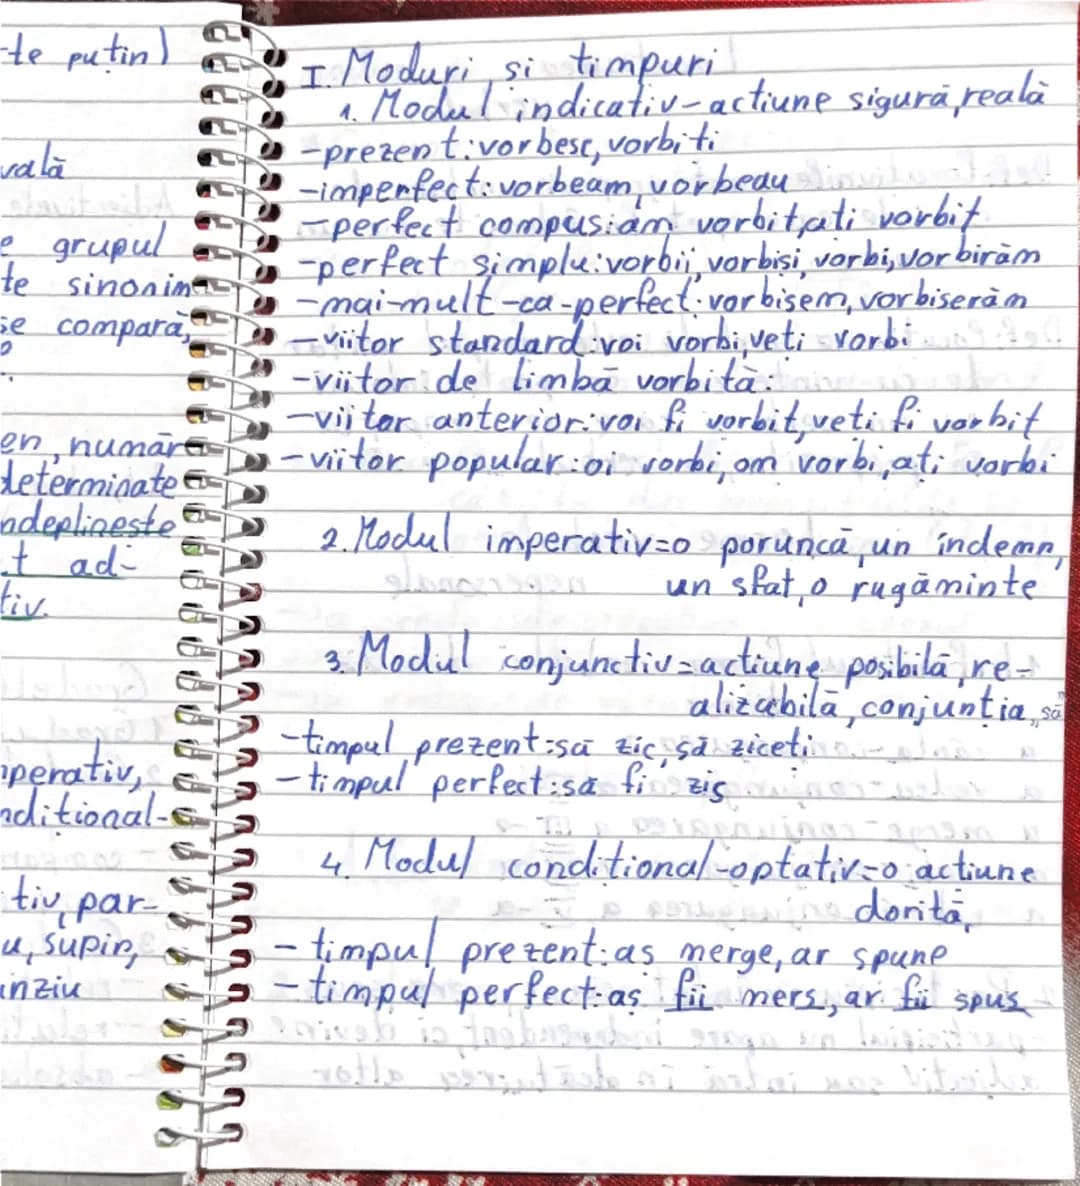 -te puțin)
vală
e grupul
te sinonim
se compară,
en, număr
determinate
ndeplinește
t ad-
tiv.
perativ,
nditional-
tiv, par-
u, supin,
unziu
I. Moduri și timpuri
1. Modul indicativ-acțiune sigură, reală
-prezent: vorbesc, vorbiți
-imperfect: vorbeam, vorbeau
-perfect compus: am vorbit, ați vorbit
-perfect simplu: vorbii, vorbiși, vorbi, vorbirăm
-mai-mult-ca-perfect: vorbisem, vorbiserăm
-viitor standard: voi vorbi, veți vorbi
-viitor de limbă vorbită:
-viitor anterior: voi fi vorbit, veți fi vorbit
-viitor popular: oi vorbi, om vorbi, ați vorbi
2. Modul imperativ=o poruncă, un îndemn,
un sfat, o rugăminte
3. Modul conjunctiv=acțiune posibilă, re-
alizabilă, conjuntia „să"
-timpul prezent: să zic, să ziceți
-timpul perfect: să fi zis
4. Modul condițional-optativ=o acțiune
dorită,
- timpul prezent: aș merge, ar spune
- timpul perfect: aș fii mers, ar fii spus